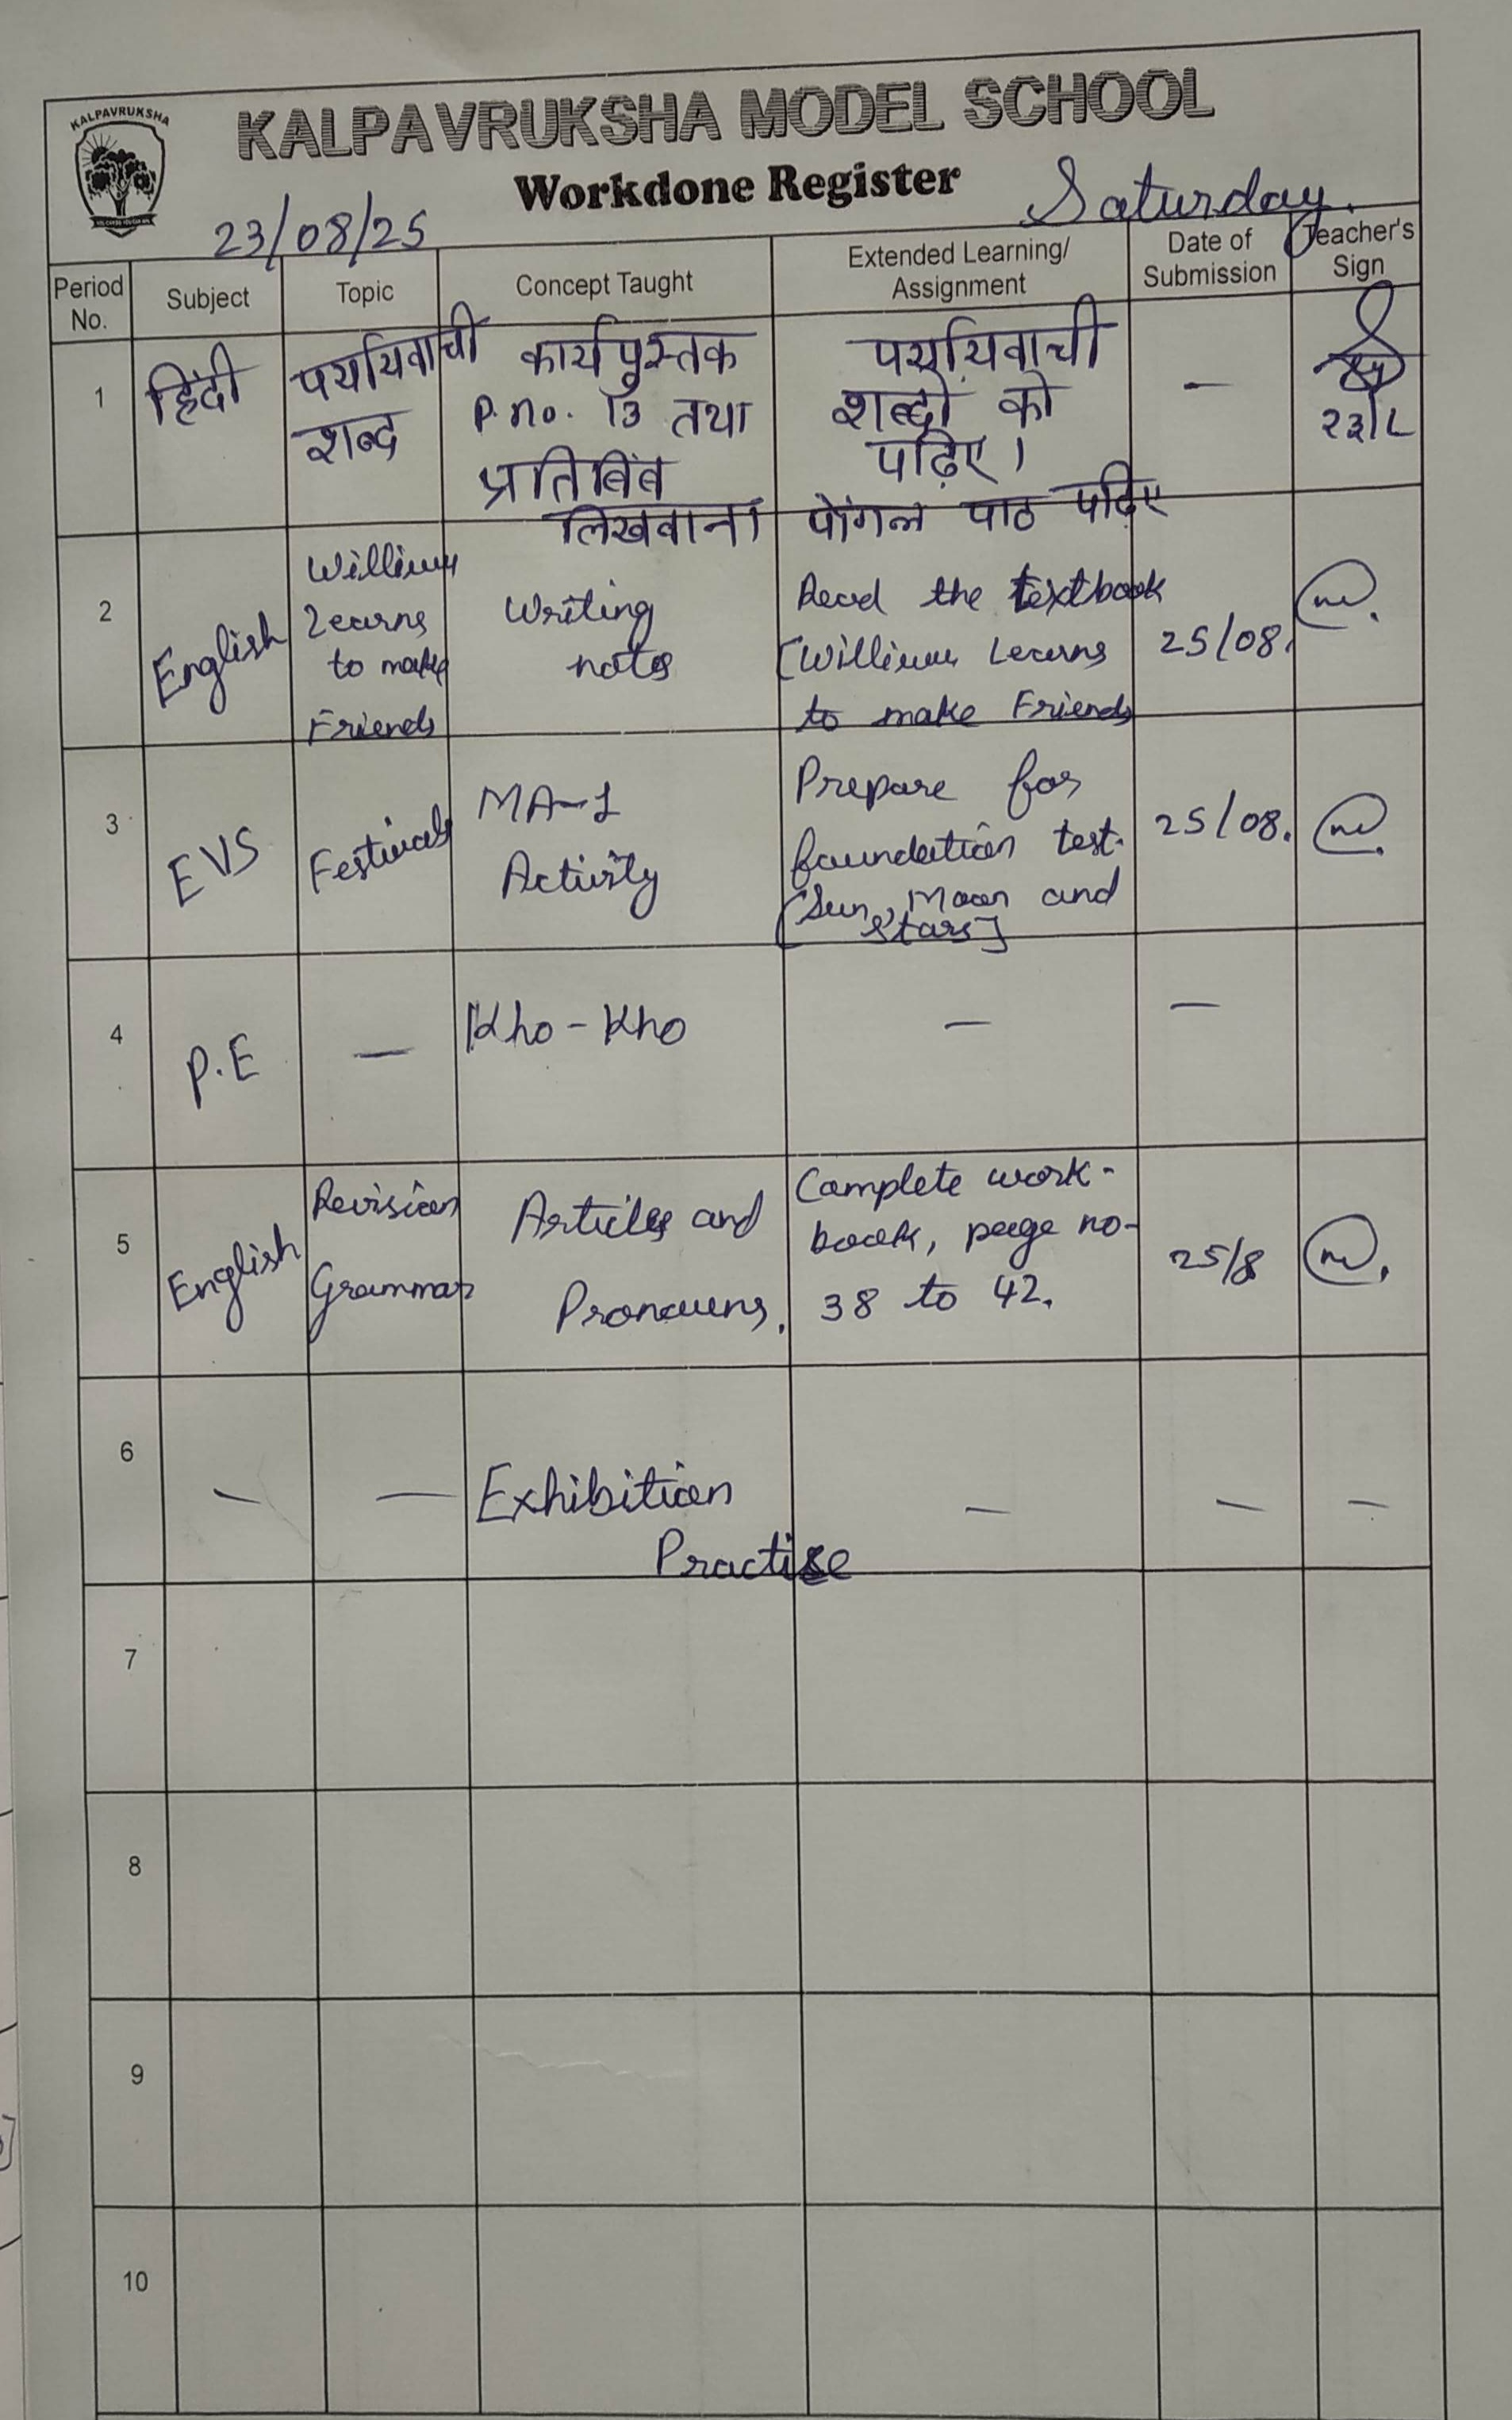 KALPAVRUKSHA
KALPAVRUKSHA MODEL SCHOOL
Workdone Register
23/08/25
Saturday.
Period No.
Subject
Topic
Concept Taught
Extended Learning/
Assignment
Date of
Submission
Teacher's
Sign
1
हिंदी
पर्यायवाची
शब्द
कार्यपुस्तक
P. no. 13 तथा
प्रतिबिंब
लिखवाना
पर्यायवाची
शब्दों को
पढ़िए।
पोंगल पाठ पढ़िए
—
२३/८
2
English
William
Learns
to make
Friends
Writing
notes
Read the textbook
[William Learns
to make Friends
25/08.
3
EVS
Festivals
MA-1
Activity
Prepare for
foundation test.
[Sun, Moon and
Stars]
25/08.
4
P.E
—
Kho-Kho
—
—
5
English
Revision
Grammar
Articles and
Pronouns.
Complete work-
book, page no-
38 to 42.
25/8
6
—
—
Exhibition
Practise
—
—
—
7
8
9
10